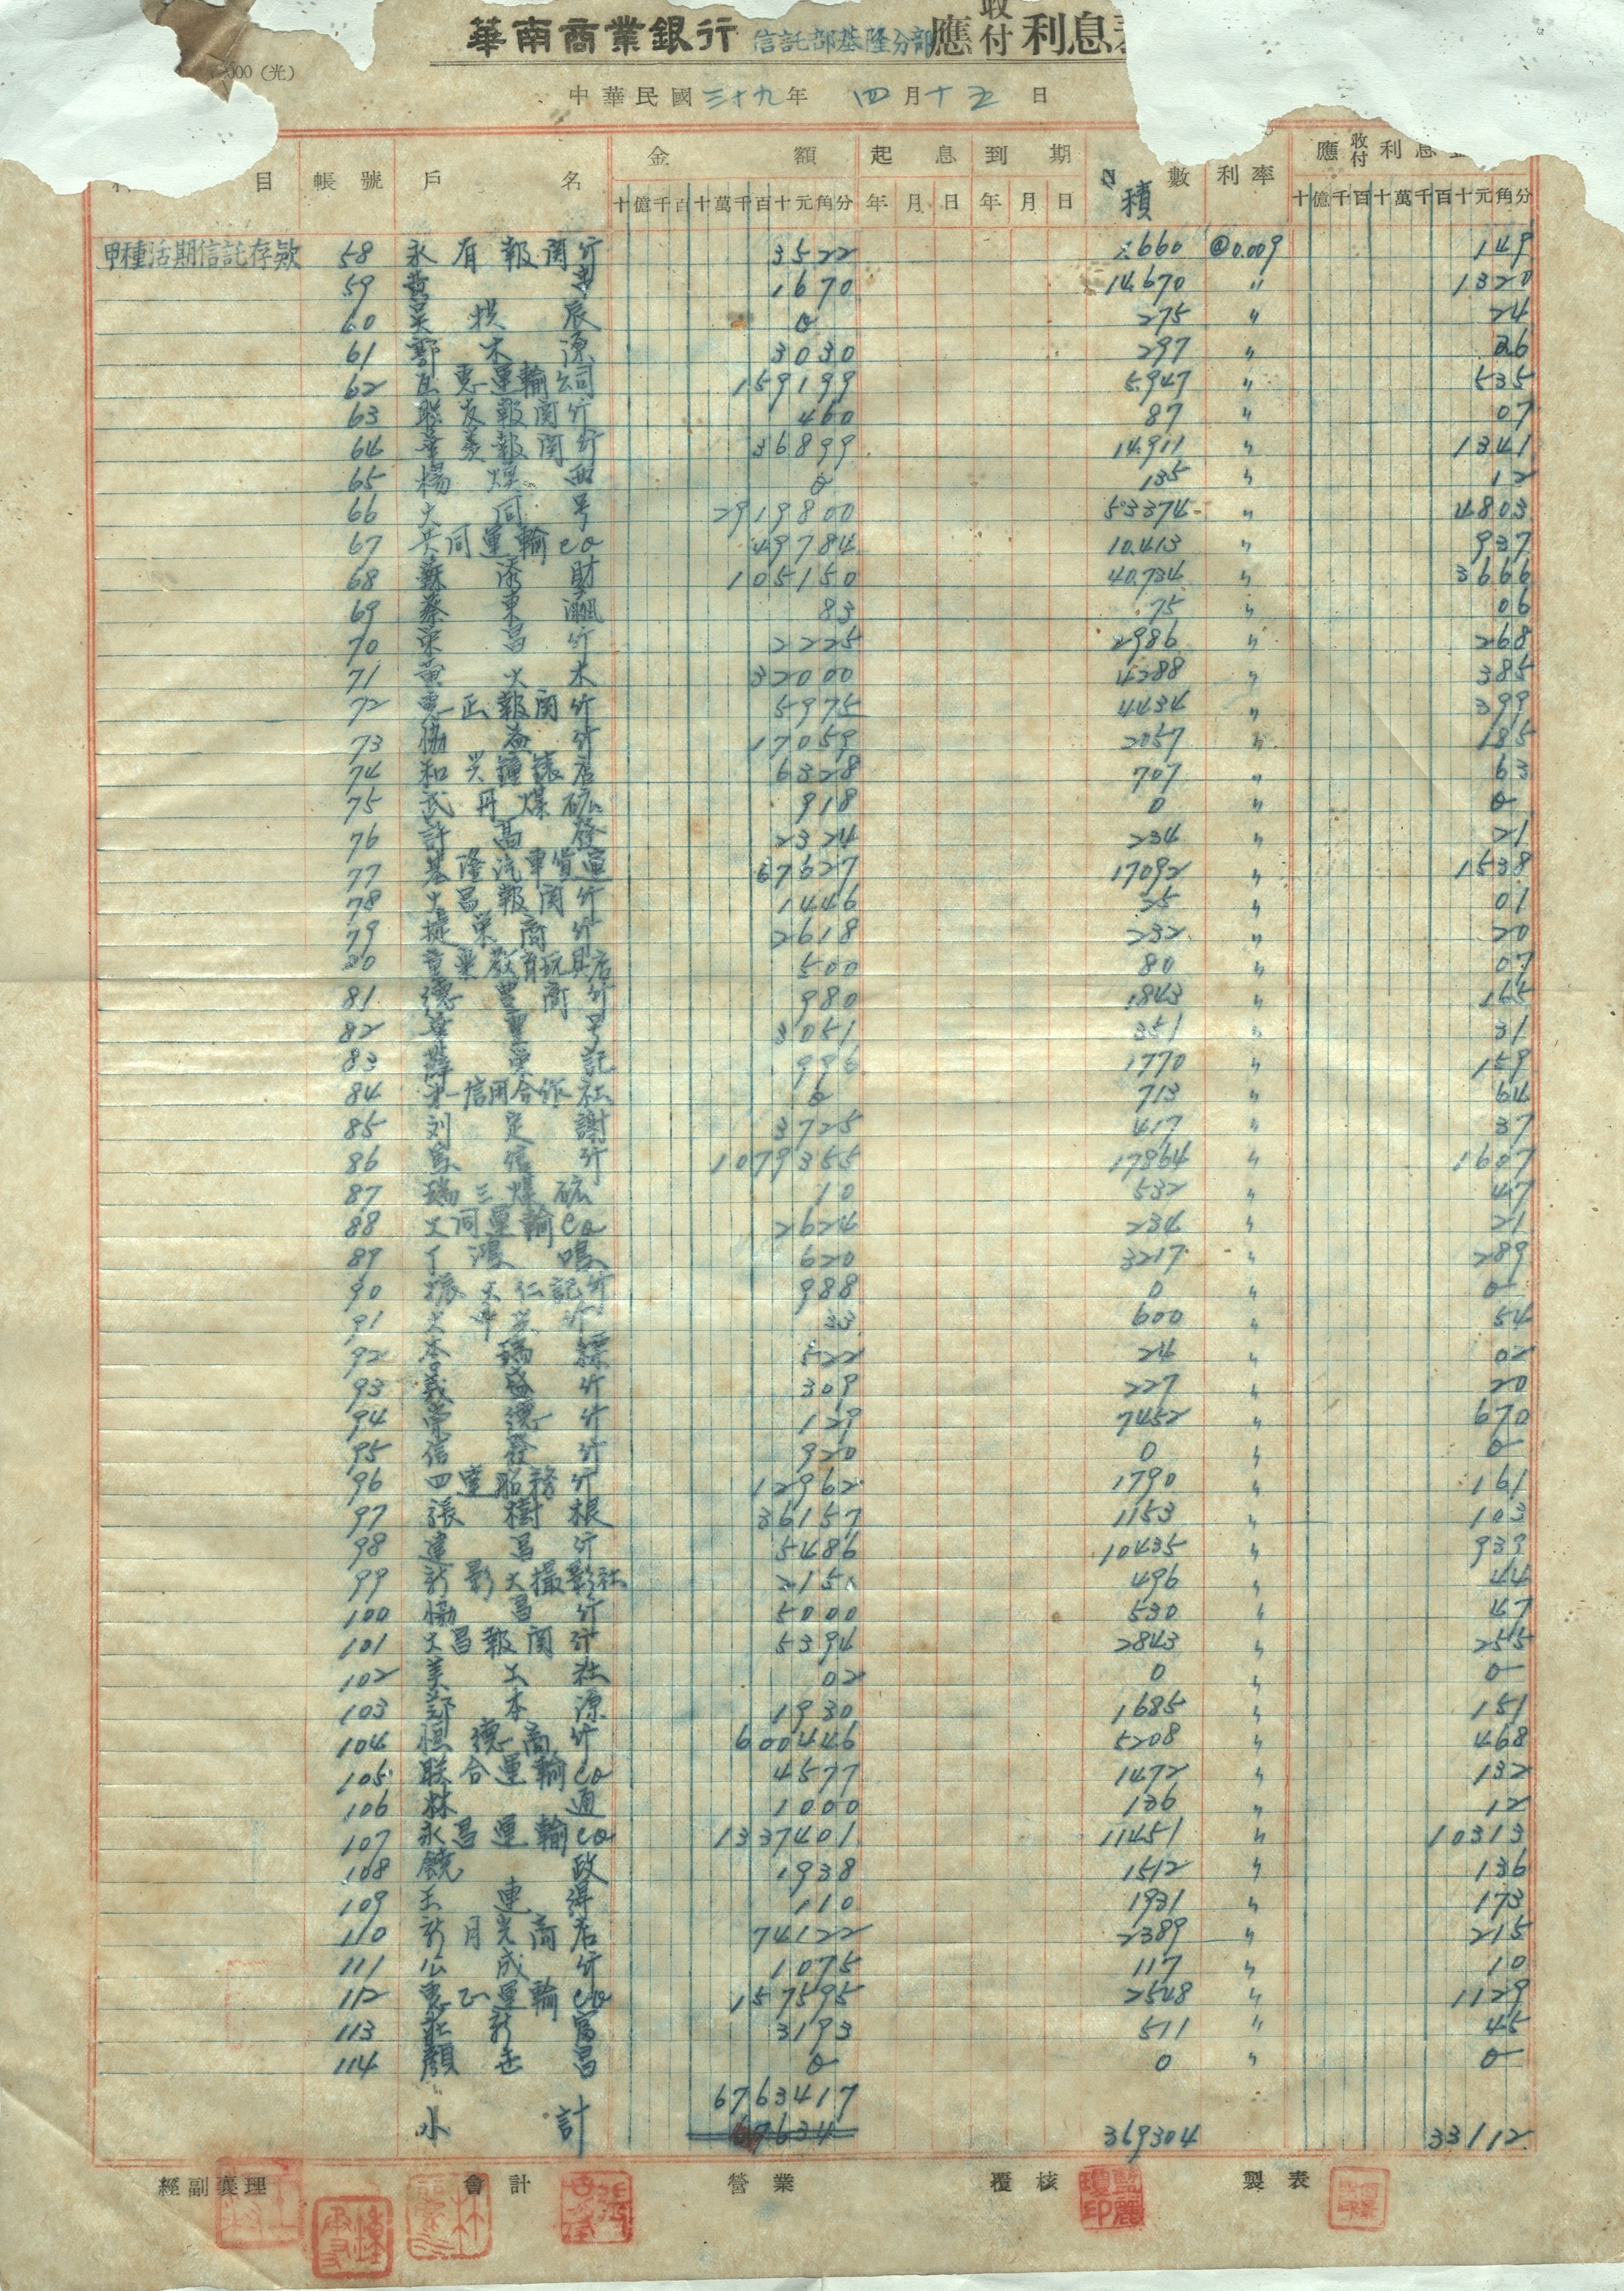 華南商業銀行 信託部基隆分部 應收付利息
000（光）
中華民國三十九年 四月十五日
目 帳號 戶名 金額 起息 到期 積數 利率 應收付利息
十億千百十萬千百十元角分 年月日 年月日 十億千百十萬千百十元角分
甲種活期信託存款 58 永有報關行 3522 1660 @0.009 149
59 黃 1670 14,670 〃 1320
60 吳 辰 0 275 〃 24
61 鄭木源 3030 297 〃 26
62 互惠運輸公司 159199 5947 〃 535
63 聯友報關行 460 87 〃 07
64 華美報關行 36899 14,911 〃 1341
65 楊 0 135 〃 12
66 大同号 2919800 53374 〃 4803
67 共同運輸co 49784 10,413 〃 937
68 蘇添財 105150 40,734 〃 3666
69 蔡東 83 75 〃 06
70 榮昌行 2225 2986 〃 268
71 黃火木 32000 4288 〃 385
72 惠正報關行 5975 4434 〃 399
73 協益行 17059 2057 〃 185
74 和兴鐘錶店 6328 707 〃 63
75 武丹煤砿 918 0 〃 0
76 許高發 2324 234 〃 21
77 基隆汽車貨運 67627 17092 〃 1538
78 大昌報關行 1446 25 〃 01
79 捷榮商行 2618 232 〃 20
80 育玩具店 500 80 〃 07
81 德豐商行 980 1843 〃 165
82 号 3051 351 〃 31
83 榮記 996 1770 〃 159
84 才一信用合作社 0 713 〃 64
85 刘定謝 3725 417 〃 37
86 信行 1079355 17864 〃 1607
87 瑞三煤砿 10 532 〃 47
88 大同運輸Co 2624 234 〃 21
89 丁鴻鳴 620 3217 〃 289
90 大仁記行 988 0 〃 0
91 大中 行 33 600 〃 54
92 李瑞 522 24 〃 02
93 義盛行 309 227 〃 20
94 榮德行 129 7452 〃 670
95 信發行 920 0 〃 0
96 四達船務行 12962 1790 〃 161
97 張樹根 36157 1153 〃 103
98 建昌行 5486 10435 〃 939
99 新影大撮影社 215 496 〃 44
100 協昌行 5000 530 〃 47
101 大昌報關行 5394 2843 〃 255
102 美工社 02 0 〃 0
103 鄭本源 1930 1685 〃 151
104 恒德商行 600446 5208 〃 468
105 联合運輸Co 4577 1472 〃 132
106 林通 1000 136 〃 12
107 永昌運輸co 1337401 11451 〃 10313
108 饒政 1938 1512 〃 136
109 王連得 110 1931 〃 173
110 新月光商店 74122 2389 〃 215
111 公成行 1075 117 〃 10
112 惠正運輸co 157595 2548 〃 1129
113 莊新富 3193 511 〃 45
114 顏 昌 0 0 〃 0
6763417
小計 67634 369304 33112
經副襄理 會計 營業 覆核 製表